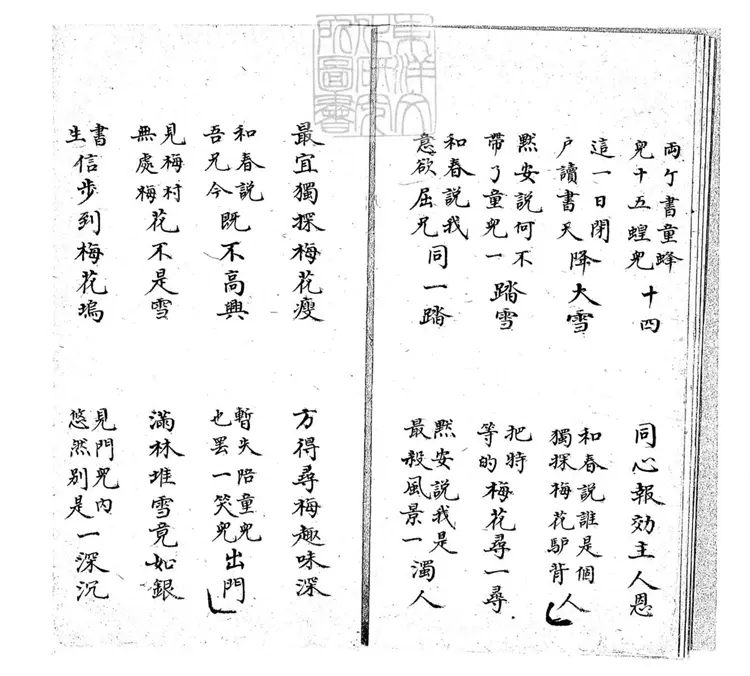 両个書童蜂兒十五蝗兒十四
同心報効主人恩
這一日閉户讀書天降大雪
和春說誰是個獨探梅花馿背人
黙安說何不帶了童兒一踏雪
把特等的梅花尋一尋
和春說我意欲屈兄同一踏
黙安說我是最殺風景一濁人
最宜獨探梅花瘦
方得尋梅趣味深
和春說吾兄今既不高興
暫失陪童兒也罢一笑兒出門
見梅村無處梅花不是雪
滿林堆雪竟如銀
書生信步到梅花塢
見門兒內悠然别是一深沉
東洋文
化研究
所圖書